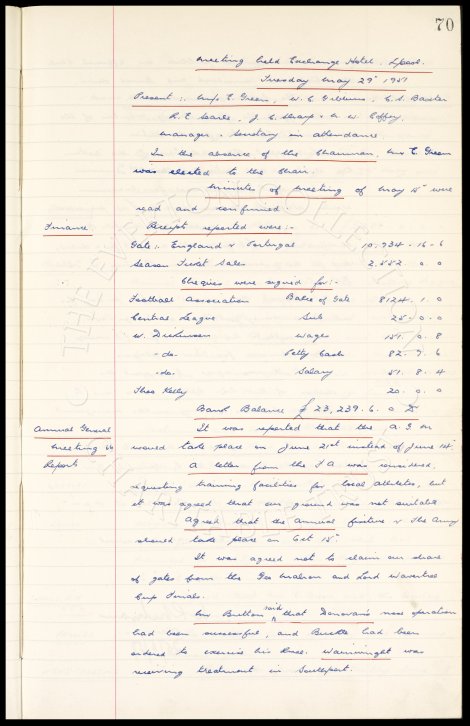 70
Meeting held Exchange Hotel, Lpool.
Tuesday May 29th 1951
Present:- Mr E. Green, W. C. Gibbins, C. S. Baxter
R. E. Searle, J. C. Sharp & W. Coffey.
Manager & Secretary in attendance
In the absence of the Chairman, Mr E. Green
was elected to the Chair.
Minutes of meeting of May 15th were
read and confirmed
Finance. Receipts reported were:-
Gate:- England v Portugal 10,734 - 15 - 6
Season Ticket Sales 2,552 . 0 . 0
Cheques were signed for:-
Football Association Balce of Gate 8124 . 1 . 0
Central League Sub 25 . 0 . 0
W. Dickinson Wages 151 . 0 . 8
- do. Petty Cash 82 . 7 . 6
- do. Salary 51 . 8 . 4
Theo Kelly 20 . 0 . 0
Bank Balance £23,239 . 6 . 0
Annual General It was reported that the A.G.M
Meeting would take place on June 21st instead of June 14th
Reports A letter from the F A was considered,
requesting training facilities for local athletes, but
it was agreed that our ground was not suitable
Agreed that the annual fixture v The Army
should take place on Oct 15th
It was agreed not to claim our share
of gates from the Geo Mahon and Lord Wavertree
Cup Finals.
Mr Britton said that Donovan's nose operation
had been successful, and Buckle had been
ordered to exercise his knee. Wainwright was
receiving treatment in Southport.
© THE EVERTON COLLECTION